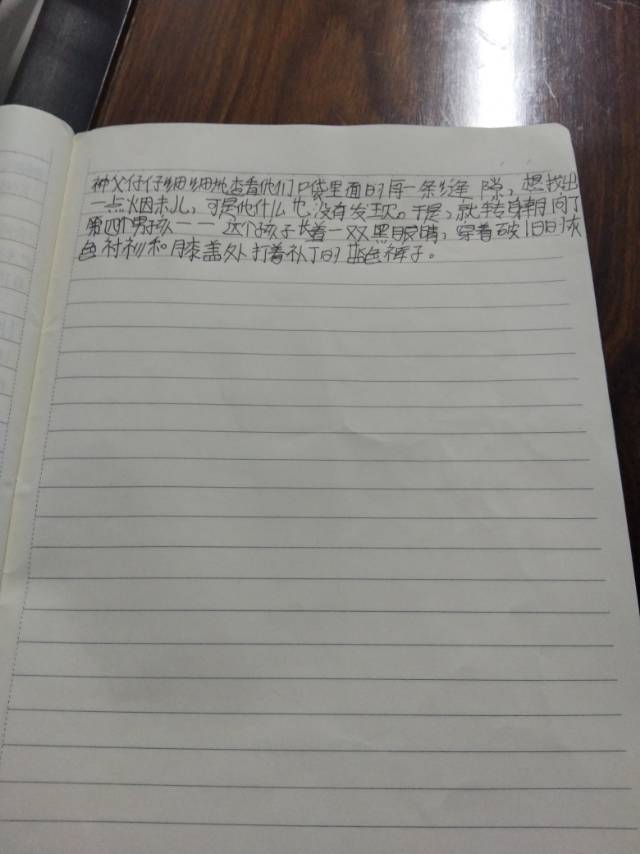 神父仔仔细细地查看他们口袋里面的每一条缝隙，想找出
一点烟末儿，可是他什么也没有发现。于是，就转身朝向了
第四个男孩——这个孩子长着一双黑眼睛，穿着破旧的灰
色衬衫和膝盖处打着补丁的蓝色裤子。